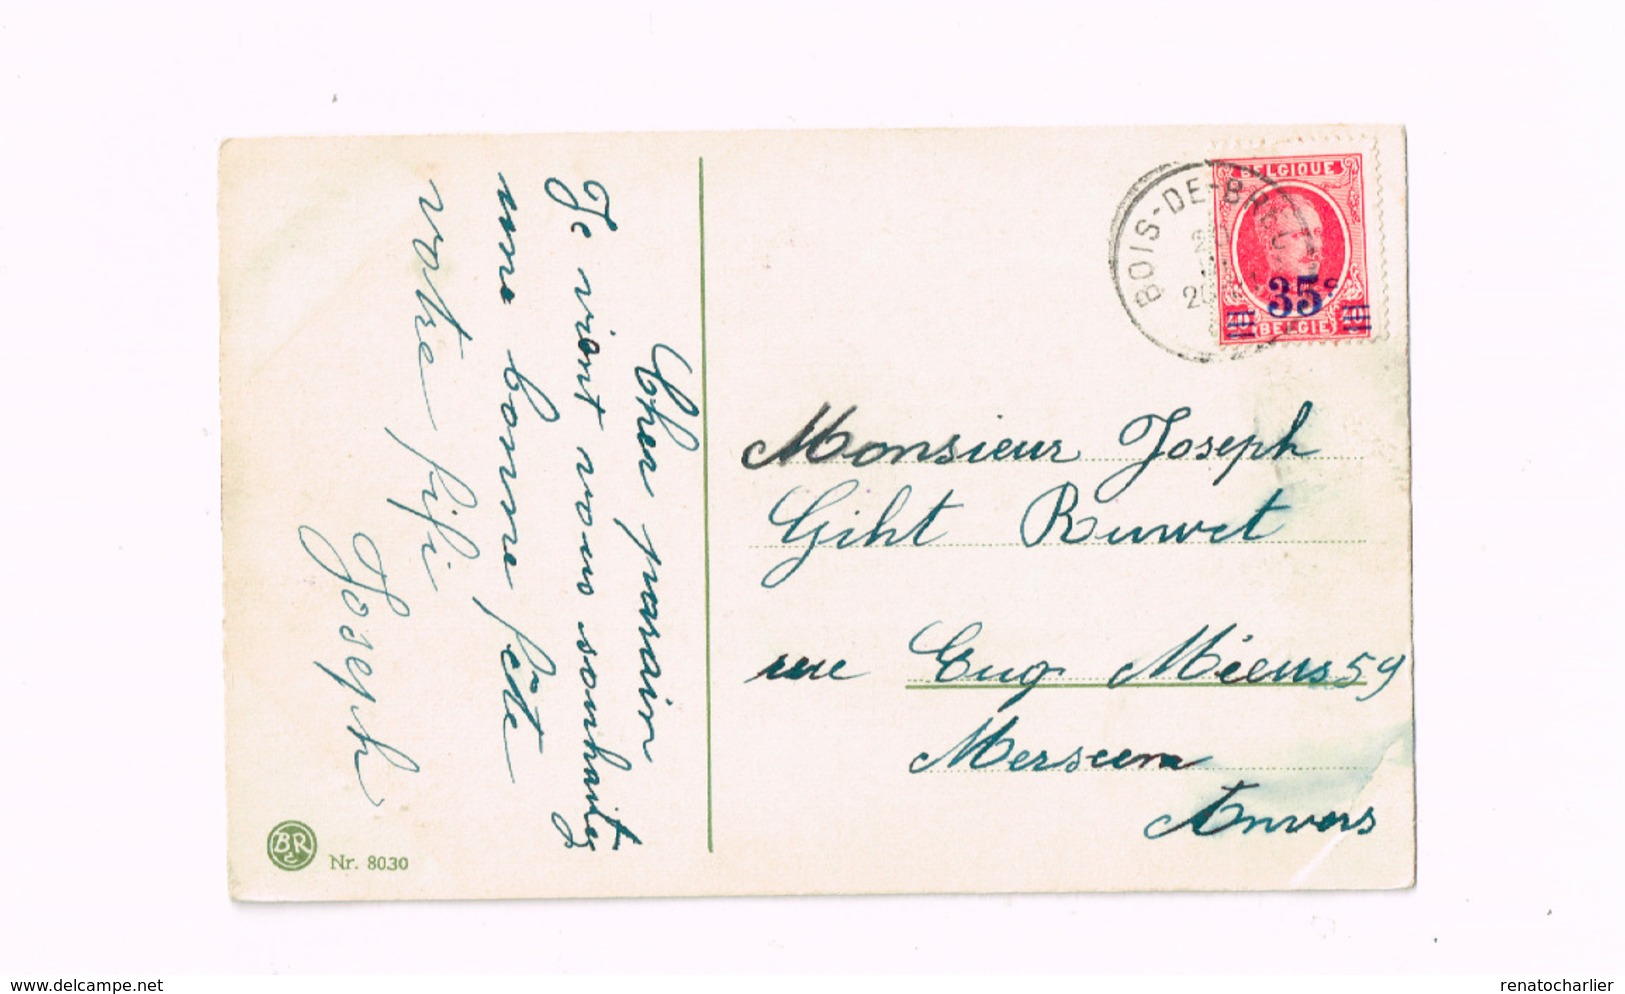 Cher parrain
Je vient vous souhaitez
une bonne fête
votre fifi
Joseph
BR
c
Nr. 8030
BOIS-DE-BR
20
BELGIQUE
35c
BELGIE
Monsieur Joseph
Giht Ruwet
rue Eug Méeus 59
Merseem
Anvers
www.delcampe.net
renatocharlier